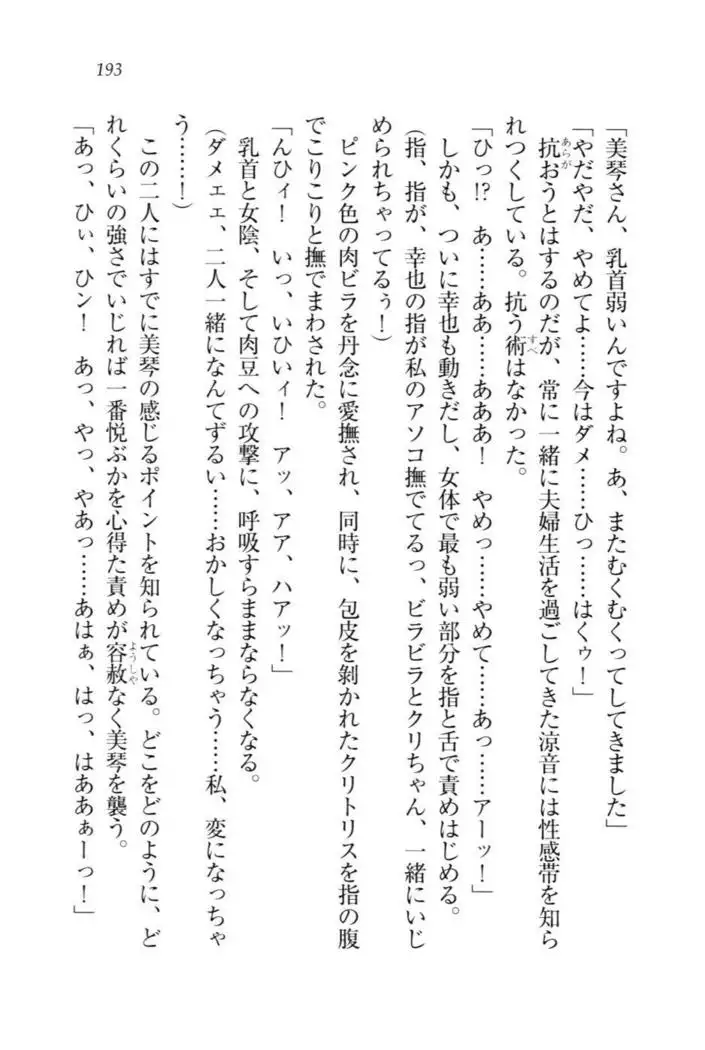 193
「美琴さん、乳首弱いんですよね。あ、またむくむくってしてきました」
「やだやだ、やめてよ……今はダメ……ひっ……はくゥ！」
抗おうとはするのだが、常に一緒に夫婦生活を過ごしてきた涼音には性感帯を知ら
れつくしている。抗う術はなかった。
「ひっ!?　あ……ああ……あああ！　やめっ……やめて……あっ……アーッ！」
しかも、ついに幸也も動きだし、女体で最も弱い部分を指と舌で責めはじめる。
（指、指が、幸也の指が私のアソコ撫でてるっ、ビラビラとクリちゃん、一緒にいじ
められちゃってるぅ！）
ピンク色の肉ビラを丹念に愛撫され、同時に、包皮を剝かれたクリトリスを指の腹
でこりこりと撫でまわされた。
「んひィ！　いっ、いひいィ！　アッ、アア、ハアッ！」
乳首と女陰、そして肉豆への攻撃に、呼吸すらままならなくなる。
（ダメェェ、二人一緒になんてずるい……おかしくなっちゃう……私、変になっちゃ
う……！）
この二人にはすでに美琴の感じるポイントを知られている。どこをどのように、ど
れくらいの強さでいじれば一番悦ぶかを心得た責めが容赦なく美琴を襲う。
「あっ、ひぃ、ひン！　あっ、やっ、やあっ……あはぁ、はっ、はああぁーっ！」